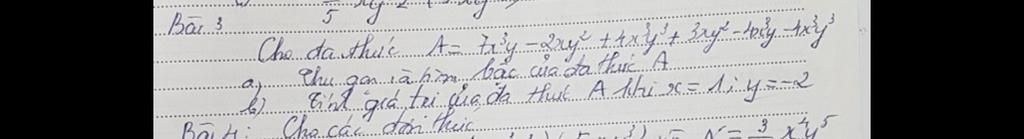 5
Bài 3
Cho đa thức A = 7x³y - 2xy² + 4x³y³ + 3xy² - 4x³y - 4x³y³
a) Thu gọn và tìm bậc của đa thức A
b) Tính giá trị của đa thức A khi x = 1; y = -2
Bài 4: Cho các đơn thức